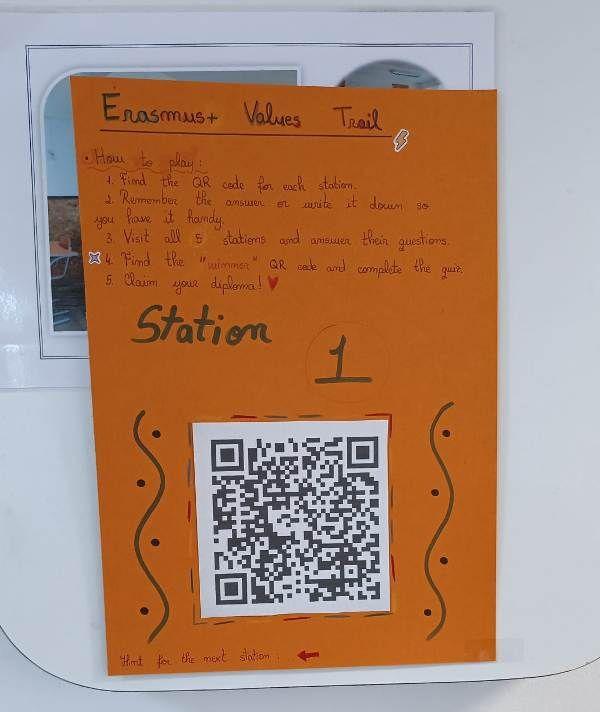 Erasmus+ Values Trail
• How to play:
1. Find the QR code for each station.
2. Remember the answer or write it down so
you have it handy.
3. Visit all 5 stations and answer their questions.
4. Find the "winner" QR code and complete the quiz.
5. Claim your diploma!
Station 1
Hint for the next station: